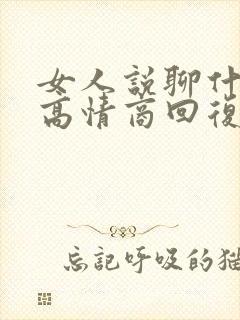 女人説聊什
高情商回復
忘記呼吸的猫